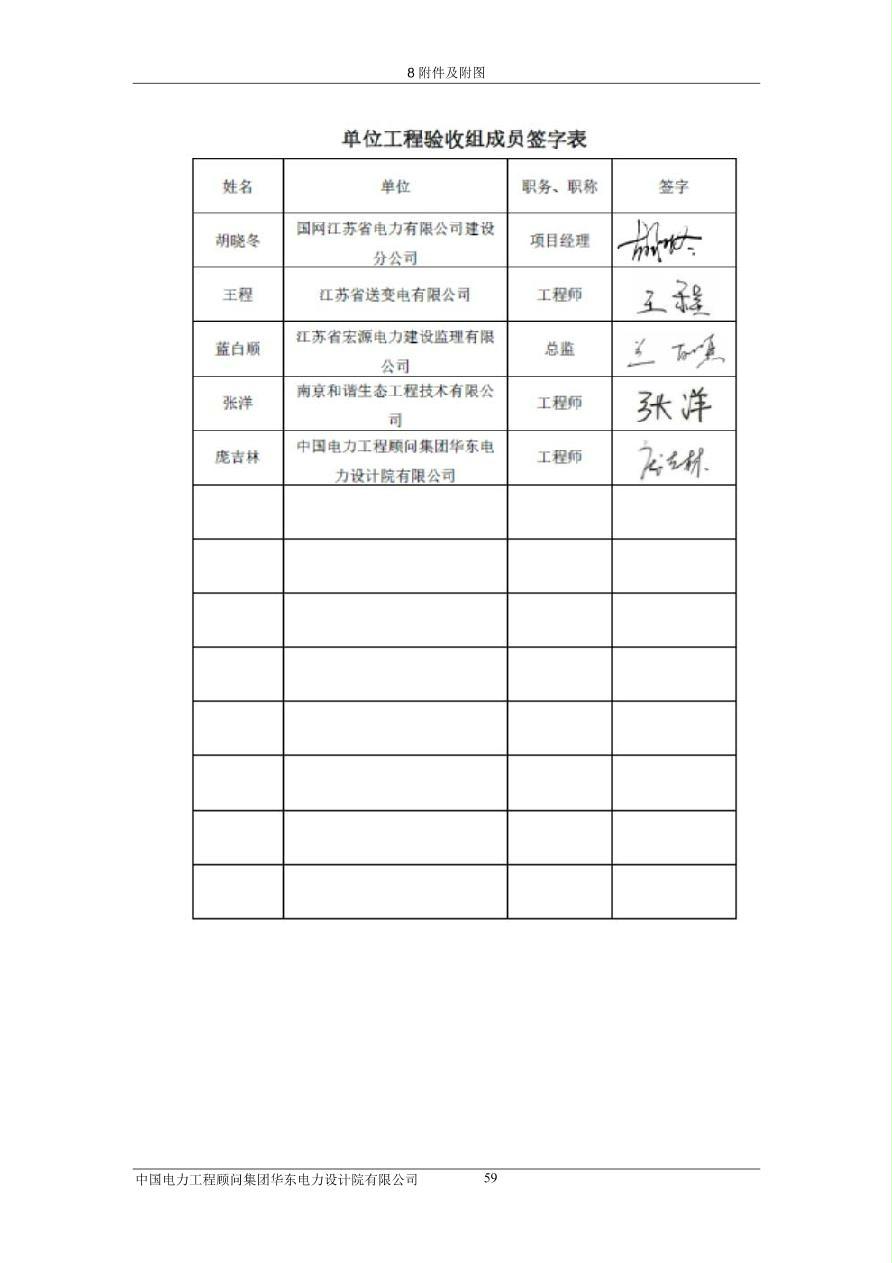 8 附件及附图
单位工程验收组成员签字表
姓名 单位 职务、职称 签字
胡晓冬 国网江苏省电力有限公司建设
分公司 项目经理
王程 江苏省送变电有限公司 工程师 王程
蓝白顺 江苏省宏源电力建设监理有限
公司 总监
张洋 南京和谐生态工程技术有限公
司 工程师 张洋
庞吉林 中国电力工程顾问集团华东电
力设计院有限公司 工程师 庞吉林
中国电力工程顾问集团华东电力设计院有限公司 59